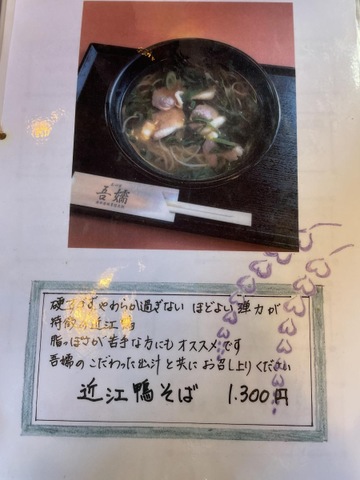 吾嬬
硬からずやわらか過ぎない ほどよい弾力が
特徴の近江鴨
脂っぽさが苦手な方にもオススメです
吾嬬のこだわった出汁と共にお召し上りください
近江鴨そば 1.300円